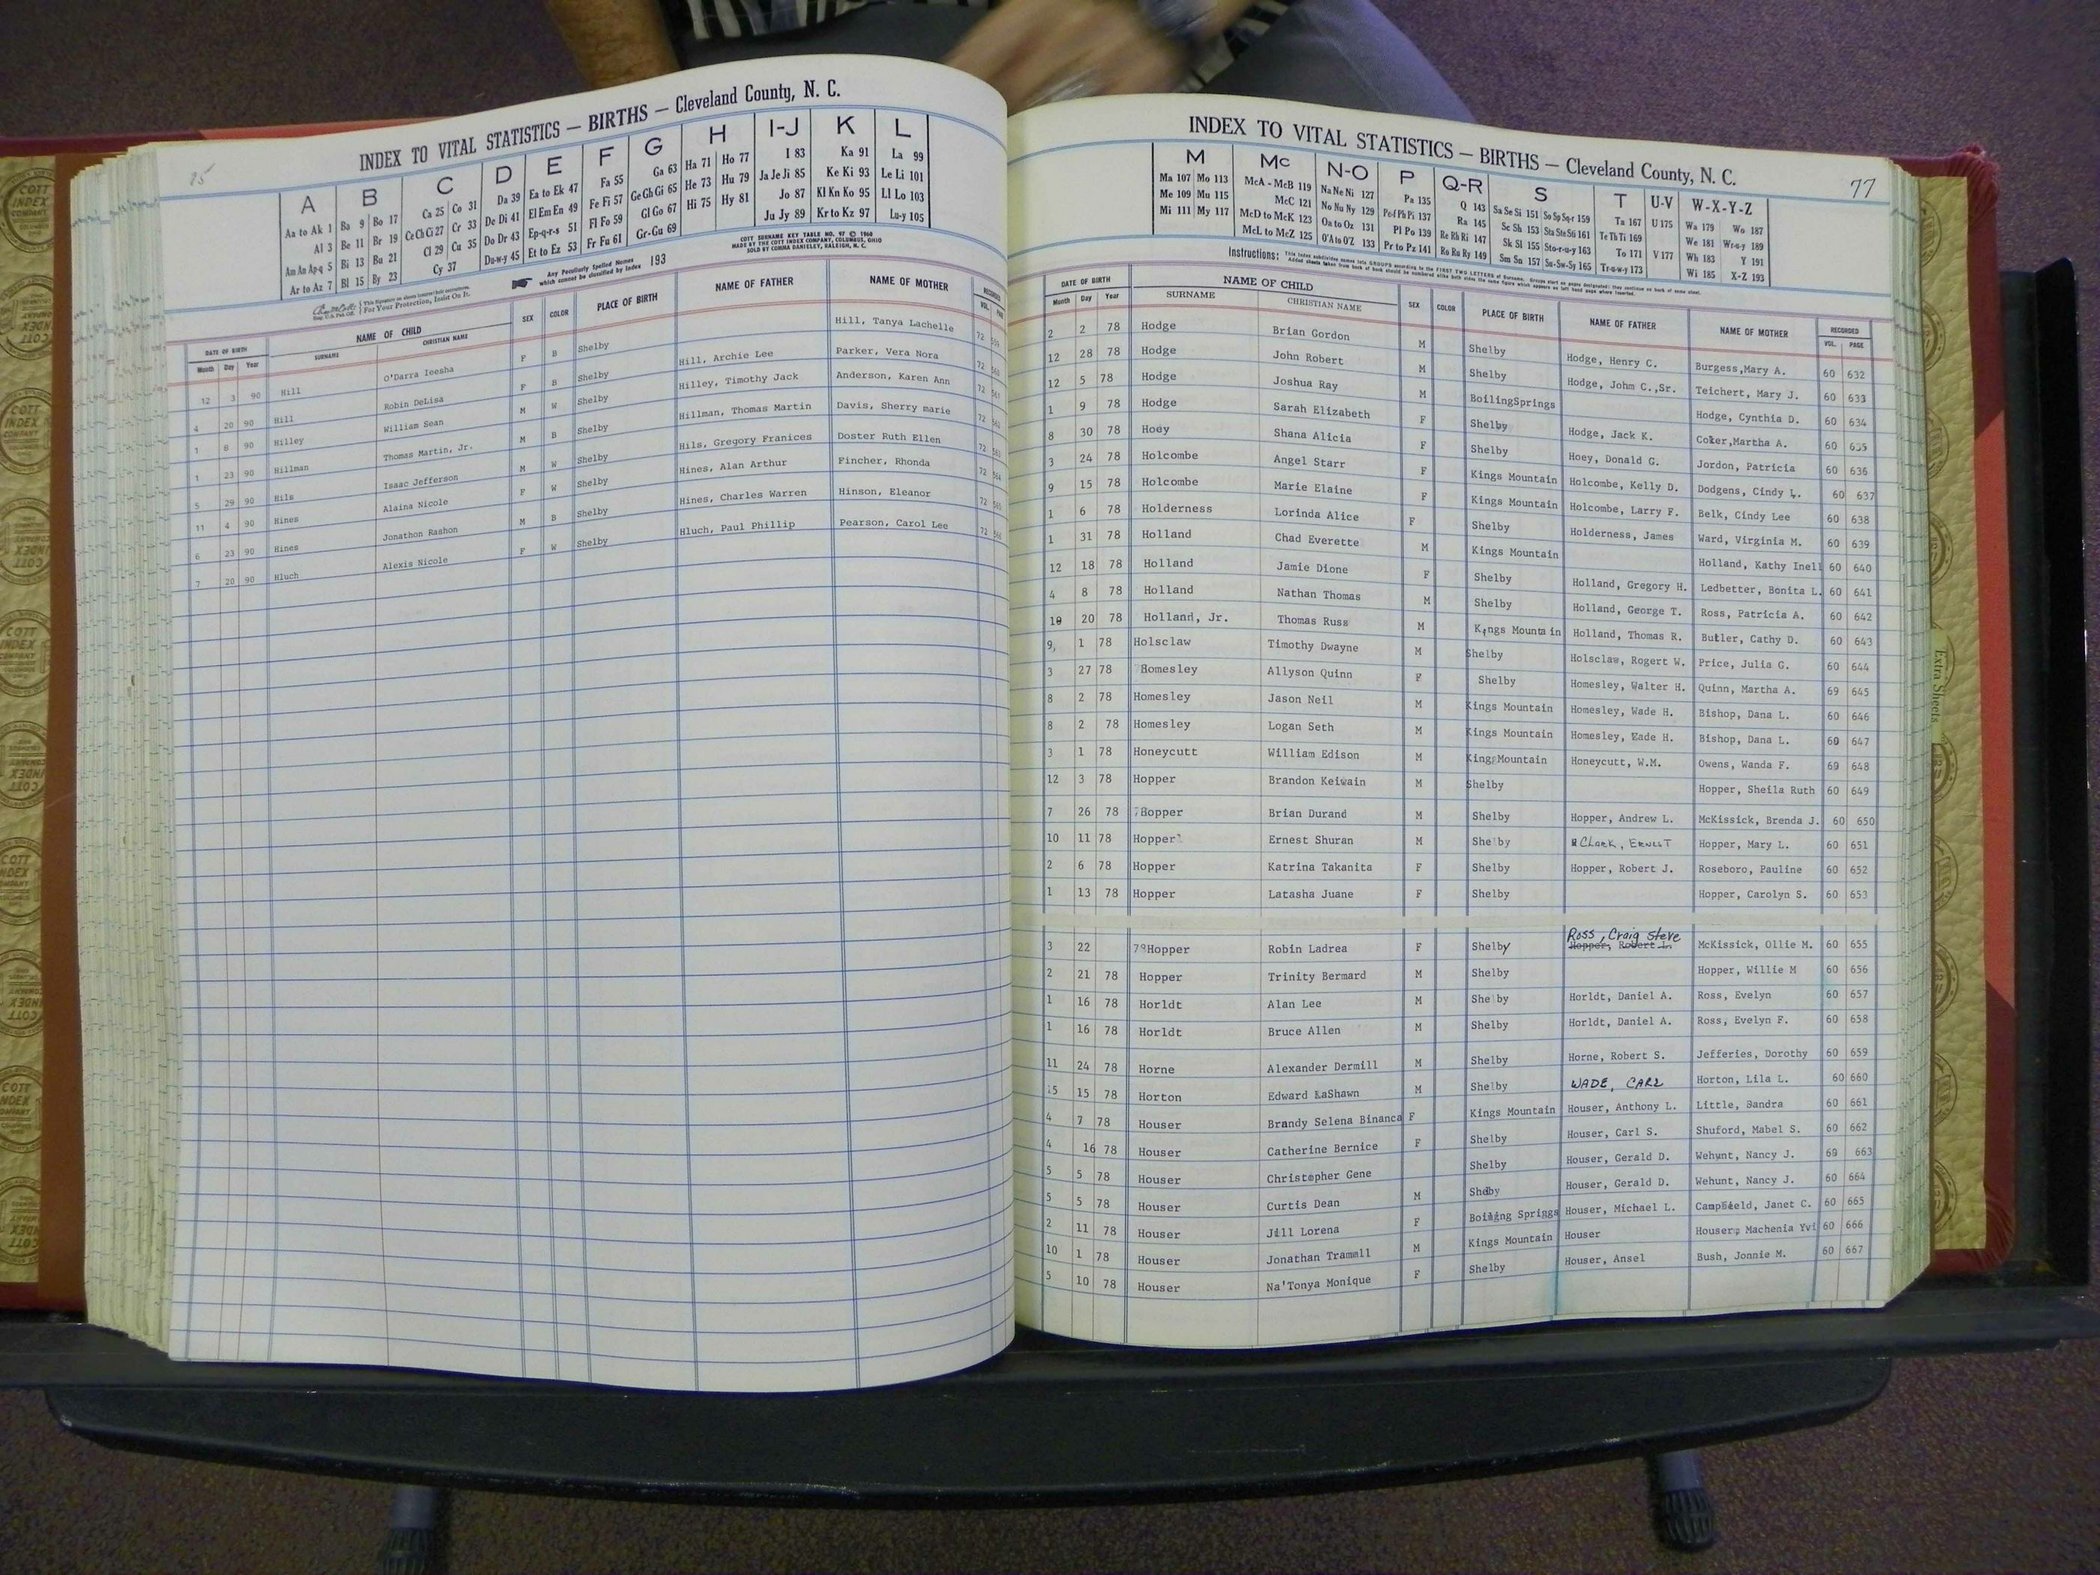 75
INDEX TO VITAL STATISTICS — BIRTHS — Cleveland County, N. C.
A B C D E F G H I-J K L
Aa to Ak 1 Ba 9 Bo 17 Ca 25 Co 31 Da 39 Ea to Ek 47 Fa 55 Ga 63 Ha 71 Ho 77 I 83 Ka 91 La 99
Al 3 Be 11 Br 19 Ce Ch Ci 27 Cr 33 De Di 41 El Em En 49 Fe Fi 57 Ge Gh Gi 65 He 73 Hu 79 Ja Je Ji 85 Ke Ki 93 Le Li 101
Am An Ap-q 5 Bi 13 Bu 21 Cl 29 Cu 35 Do Dr 43 Ep-q-r-s 51 Fl Fo 59 Gl Go 67 Hi 75 Hy 81 Jo 87 Kl Kn Ko 95 Ll Lo 103
Ar to Az 7 Bl 15 By 23 Cy 37 Du-w-y 45 Et to Ez 53 Fr Fu 61 Gr-Gu 69 Ju Jy 89 Kr to Kz 97 Lu-y 105
Any Peculiarly Spelled Names which cannot be classified by Index 193
COTT SURNAME KEY TABLE NO. 97 © 1960
MADE BY THE COTT INDEX COMPANY, COLUMBUS, OHIO
SOLD BY COMMA DANIELEY, RALEIGH, N. C.
For Your Protection, Insist On It.
DATE OF BIRTH NAME OF CHILD SEX COLOR PLACE OF BIRTH NAME OF FATHER NAME OF MOTHER RECORDED
Month Day Year SURNAME CHRISTIAN NAME VOL. PAGE
12 3 90 Hill O'Darra Ieesha F B Shelby Hill, Tanya Lachelle 72 559
4 20 90 Hill Robin DeLisa F B Shelby Hill, Archie Lee Parker, Vera Nora 72 560
1 8 90 Hilley William Sean M W Shelby Hilley, Timothy Jack Anderson, Karen Ann 72 561
1 23 90 Hillman Thomas Martin, Jr. M B Shelby Hillman, Thomas Martin Davis, Sherry marie 72 562
5 29 90 Hils Isaac Jefferson M W Shelby Hils, Gregory Franices Doster Ruth Ellen 72 563
11 4 90 Hines Alaina Nicole F W Shelby Hines, Alan Arthur Fincher, Rhonda 72 564
6 23 90 Hines Jonathon Rashon M B Shelby Hines, Charles Warren Hinson, Eleanor 72 565
7 20 90 Hluch Alexis Nicole F W Shelby Hluch, Paul Phillip Pearson, Carol Lee 72 566
INDEX TO VITAL STATISTICS — BIRTHS — Cleveland County, N. C.
77
M Mc N-O P Q-R S T U-V W-X-Y-Z
Ma 107 Mo 113 McA - McB 119 Na Ne Ni 127 Pa 135 Q 143 Sa Se Si 151 So Sp Sq-r 159 Ta 167 U 175 Wa 179 Wo 187
Me 109 Mu 115 McC 121 No Nu Ny 129 Pe-f Ph Pi 137 Ra 145 Sc Sh 153 Sta Ste Sti 161 Te Th Ti 169 We 181 Wr-u-y 189
Mi 111 My 117 McD to McK 123 Oa to Oz 131 Pl Po 139 Re Rh Ri 147 Sk Sl 155 Sto-r-u-y 163 To 171 V 177 Wh 183 Y 191
McL to McZ 125 O'A to O'Z 133 Pr to Pz 141 Ro Ru Ry 149 Sm Sn 157 Su-Sw-Sy 165 Tr-u-w-y 173 Wi 185 X-Z 193
Instructions:
DATE OF BIRTH NAME OF CHILD SEX COLOR PLACE OF BIRTH NAME OF FATHER NAME OF MOTHER RECORDED
Month Day Year SURNAME CHRISTIAN NAME VOL. PAGE
2 2 78 Hodge Brian Gordon M Shelby Hodge, Henry C. Burgess,Mary A. 60 632
12 28 78 Hodge John Robert M Shelby Hodge, Johm C.,Sr. Teichert, Mary J. 60 633
12 5 78 Hodge Joshua Ray M BoilingSprings Hodge, Cynthia D. 60 634
1 9 78 Hodge Sarah Elizabeth F Shelby Hodge, Jack K. Coker,Martha A. 60 635
8 30 78 Hoey Shana Alicia F Shelby Hoey, Donald G. Jordon, Patricia 60 636
3 24 78 Holcombe Angel Starr F Kings Mountain Holcombe, Kelly D. Dodgens, Cindy L. 60 637
9 15 78 Holcombe Marie Elaine F Kings Mountain Holcombe, Larry F. Belk, Cindy Lee 60 638
1 6 78 Holderness Lorinda Alice F Shelby Holderness, James Ward, Virginia M. 60 639
1 31 78 Holland Chad Everette M Kings Mountain Holland, Kathy Inell 60 640
12 18 78 Holland Jamie Dione F Shelby Holland, Gregory H. Ledbetter, Bonita L. 60 641
4 8 78 Holland Nathan Thomas M Shelby Holland, George T. Ross, Patricia A. 60 642
10 20 78 Holland, Jr. Thomas Russ M Kings Mountain Holland, Thomas R. Butler, Cathy D. 60 643
9, 1 78 Holsclaw Timothy Dwayne M Shelby Holsclaw, Rogert W. Price, Julia G. 60 644
3 27 78 Homesley Allyson Quinn F Shelby Homesley, Walter H. Quinn, Martha A. 69 645
8 2 78 Homesley Jason Neil M Kings Mountain Homesley, Wade H. Bishop, Dana L. 60 646
8 2 78 Homesley Logan Seth M Kings Mountain Homesley, Eade H. Bishop, Dana L. 60 647
3 1 78 Honeycutt William Edison M KingsMountain Honeycutt, W.M. Owens, Wanda F. 69 648
12 3 78 Hopper Brandon Keiwain M Shelby Hopper, Sheila Ruth 60 649
7 26 78 Hopper Brian Durand M Shelby Hopper, Andrew L. McKissick, Brenda J. 60 650
10 11 78 Hopper Ernest Shuran M Shelby Clark, Ernest Hopper, Mary L. 60 651
2 6 78 Hopper Katrina Takanita F Shelby Hopper, Robert J. Roseboro, Pauline 60 652
1 13 78 Hopper Latasha Juane F Shelby Hopper, Carolyn S. 60 653
Ross, Craig Steve
3 22 78Hopper Robin Ladrea F Shelby Hopper, Robert L. McKissick, Ollie M. 60 655
2 21 78 Hopper Trinity Bermard M Shelby Hopper, Willie M 60 656
1 16 78 Horldt Alan Lee M Shelby Horldt, Daniel A. Ross, Evelyn 60 657
1 16 78 Horldt Bruce Allen M Shelby Horldt, Daniel A. Ross, Evelyn F. 60 658
11 24 78 Horne Alexander Dermill M Shelby Horne, Robert S. Jefferies, Dorothy 60 659
15 15 78 Horton Edward LaShawn M Shelby WADE, CARL Horton, Lila L. 60 660
4 7 78 Houser Brandy Selena Binanca F Kings Mountain Houser, Anthony L. Little, Sandra 60 661
4 16 78 Houser Catherine Bernice F Shelby Houser, Carl S. Shuford, Mabel S. 60 662
5 5 78 Houser Christopher Gene Shelby Houser, Gerald D. Wehunt, Nancy J. 60 663
5 5 78 Houser Curtis Dean M Shelby Houser, Gerald D. Wehunt, Nancy J. 60 664
2 11 78 Houser Jill Lorena F Boiling Springs Houser, Michael L. Campfield, Janet C. 60 665
10 1 78 Houser Jonathan Tramall M Kings Mountain Houser Houser, Machenia Yvi 60 666
5 10 78 Houser Na'Tonya Monique F Shelby Houser, Ansel Bush, Jonnie M. 60 667
Extra Sheets
COTT INDEX COMPANY